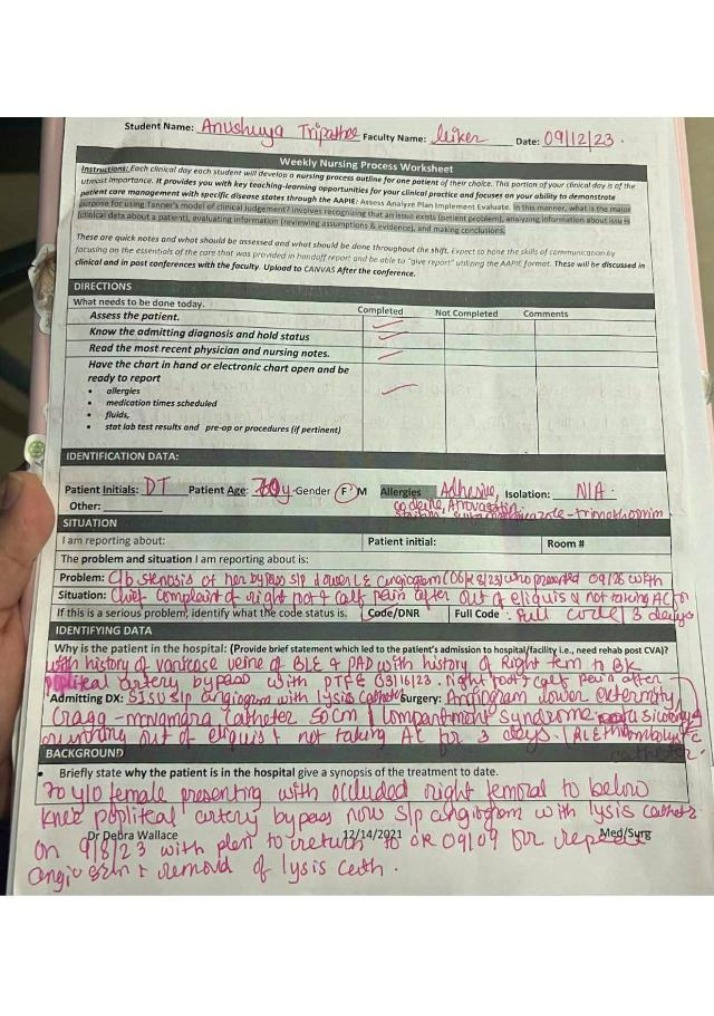 Student Name: Anushuya Tripathee Faculty Name: leiker Date: 09/12/23.
Weekly Nursing Process Worksheet
Instructions: Each clinical day each student will develop a nursing process outline for one patient of their choice. This portion of your clinical day is of the
utmost importance. It provides you with key teaching-learning opportunities for your clinical practice and focuses on your ability to demonstrate
patient care management with specific disease states through the AAPIE: Assess Analyze Plan Implement Evaluate. In this manner, what is the major
purpose for using Tanner's model of clinical judgement? involves recognizing that an issue exists (patient problem), analyzing information about issue
(clinical data about a patient), evaluating information (reviewing assumptions & evidence), and making conclusions.
These are quick notes and what should be assessed and what should be done throughout the shift. Expect to hone the skills of communication by
focusing on the essentials of the care that was provided in handoff report and be able to "give report" utilizing the AAPIE format. These will be discussed in
clinical and in post conferences with the faculty. Upload to CANVAS After the conference.
DIRECTIONS
What needs to be done today. Completed Not Completed Comments
Assess the patient.
Know the admitting diagnosis and hold status
Read the most recent physician and nursing notes.
Have the chart in hand or electronic chart open and be
ready to report
• allergies
• medication times scheduled
• fluids,
• stat lab test results and pre-op or procedures (if pertinent)
IDENTIFICATION DATA:
Patient Initials: DT Patient Age: 70y Gender F M Allergies Adhesive, Isolation: N/A.
Other: codeine, -trimethoprim
SITUATION
I am reporting about: Patient initial: Room #
The problem and situation I am reporting about is:
Problem: C/b stenosis of her bypass s/p lower LE angiogram who presented 09/26 with
Situation: Chief complaint of right foot & calf pain after out of eliquis & not taking AC for
If this is a serious problem, identify what the code status is. Code/DNR Full Code : Full code 3 days
IDENTIFYING DATA
Why is the patient in the hospital: (Provide brief statement which led to the patient's admission to hospital/facility i.e., need rehab post CVA)?
with history of varicose veins of BLE & PAD with history of Right fem to BK
popliteal artery bypass with PTFE 03/16/23. right foot & calf pain after
Admitting DX: SISU s/p angiogram with lysis catheter Surgery: Angiogram lower extremity
Cragg-mcnamara catheter 50cm | compartment syndrome
running out of eliquis & not taking AC for 3 days. catheter.
BACKGROUND
• Briefly state why the patient is in the hospital give a synopsis of the treatment to date.
70 y/o female presenting with occluded right femoral to below
knee popliteal artery bypass now s/p angiogram with lysis catheter
Dr Debra Wallace 12/14/2021 Med/Surg
on 9/8/23 with plan to return to OR 09/09 for repeat
angiogram & removal of lysis cath.